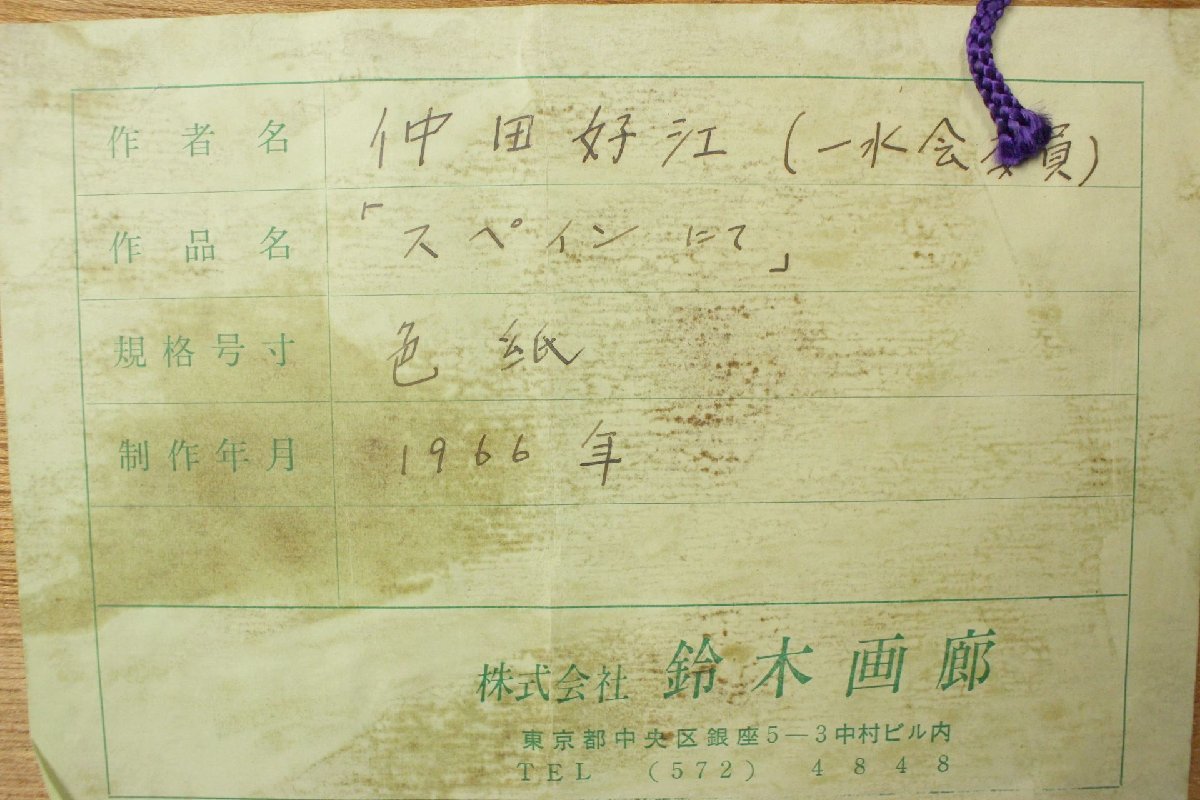 作者名 仲田好江(一水会委員)
作品名 「スペインにて」
規格号寸 色紙
制作年月 1966年
株式会社 鈴木画廊
東京都中央区銀座5―3中村ビル内
TEL (572) 4848